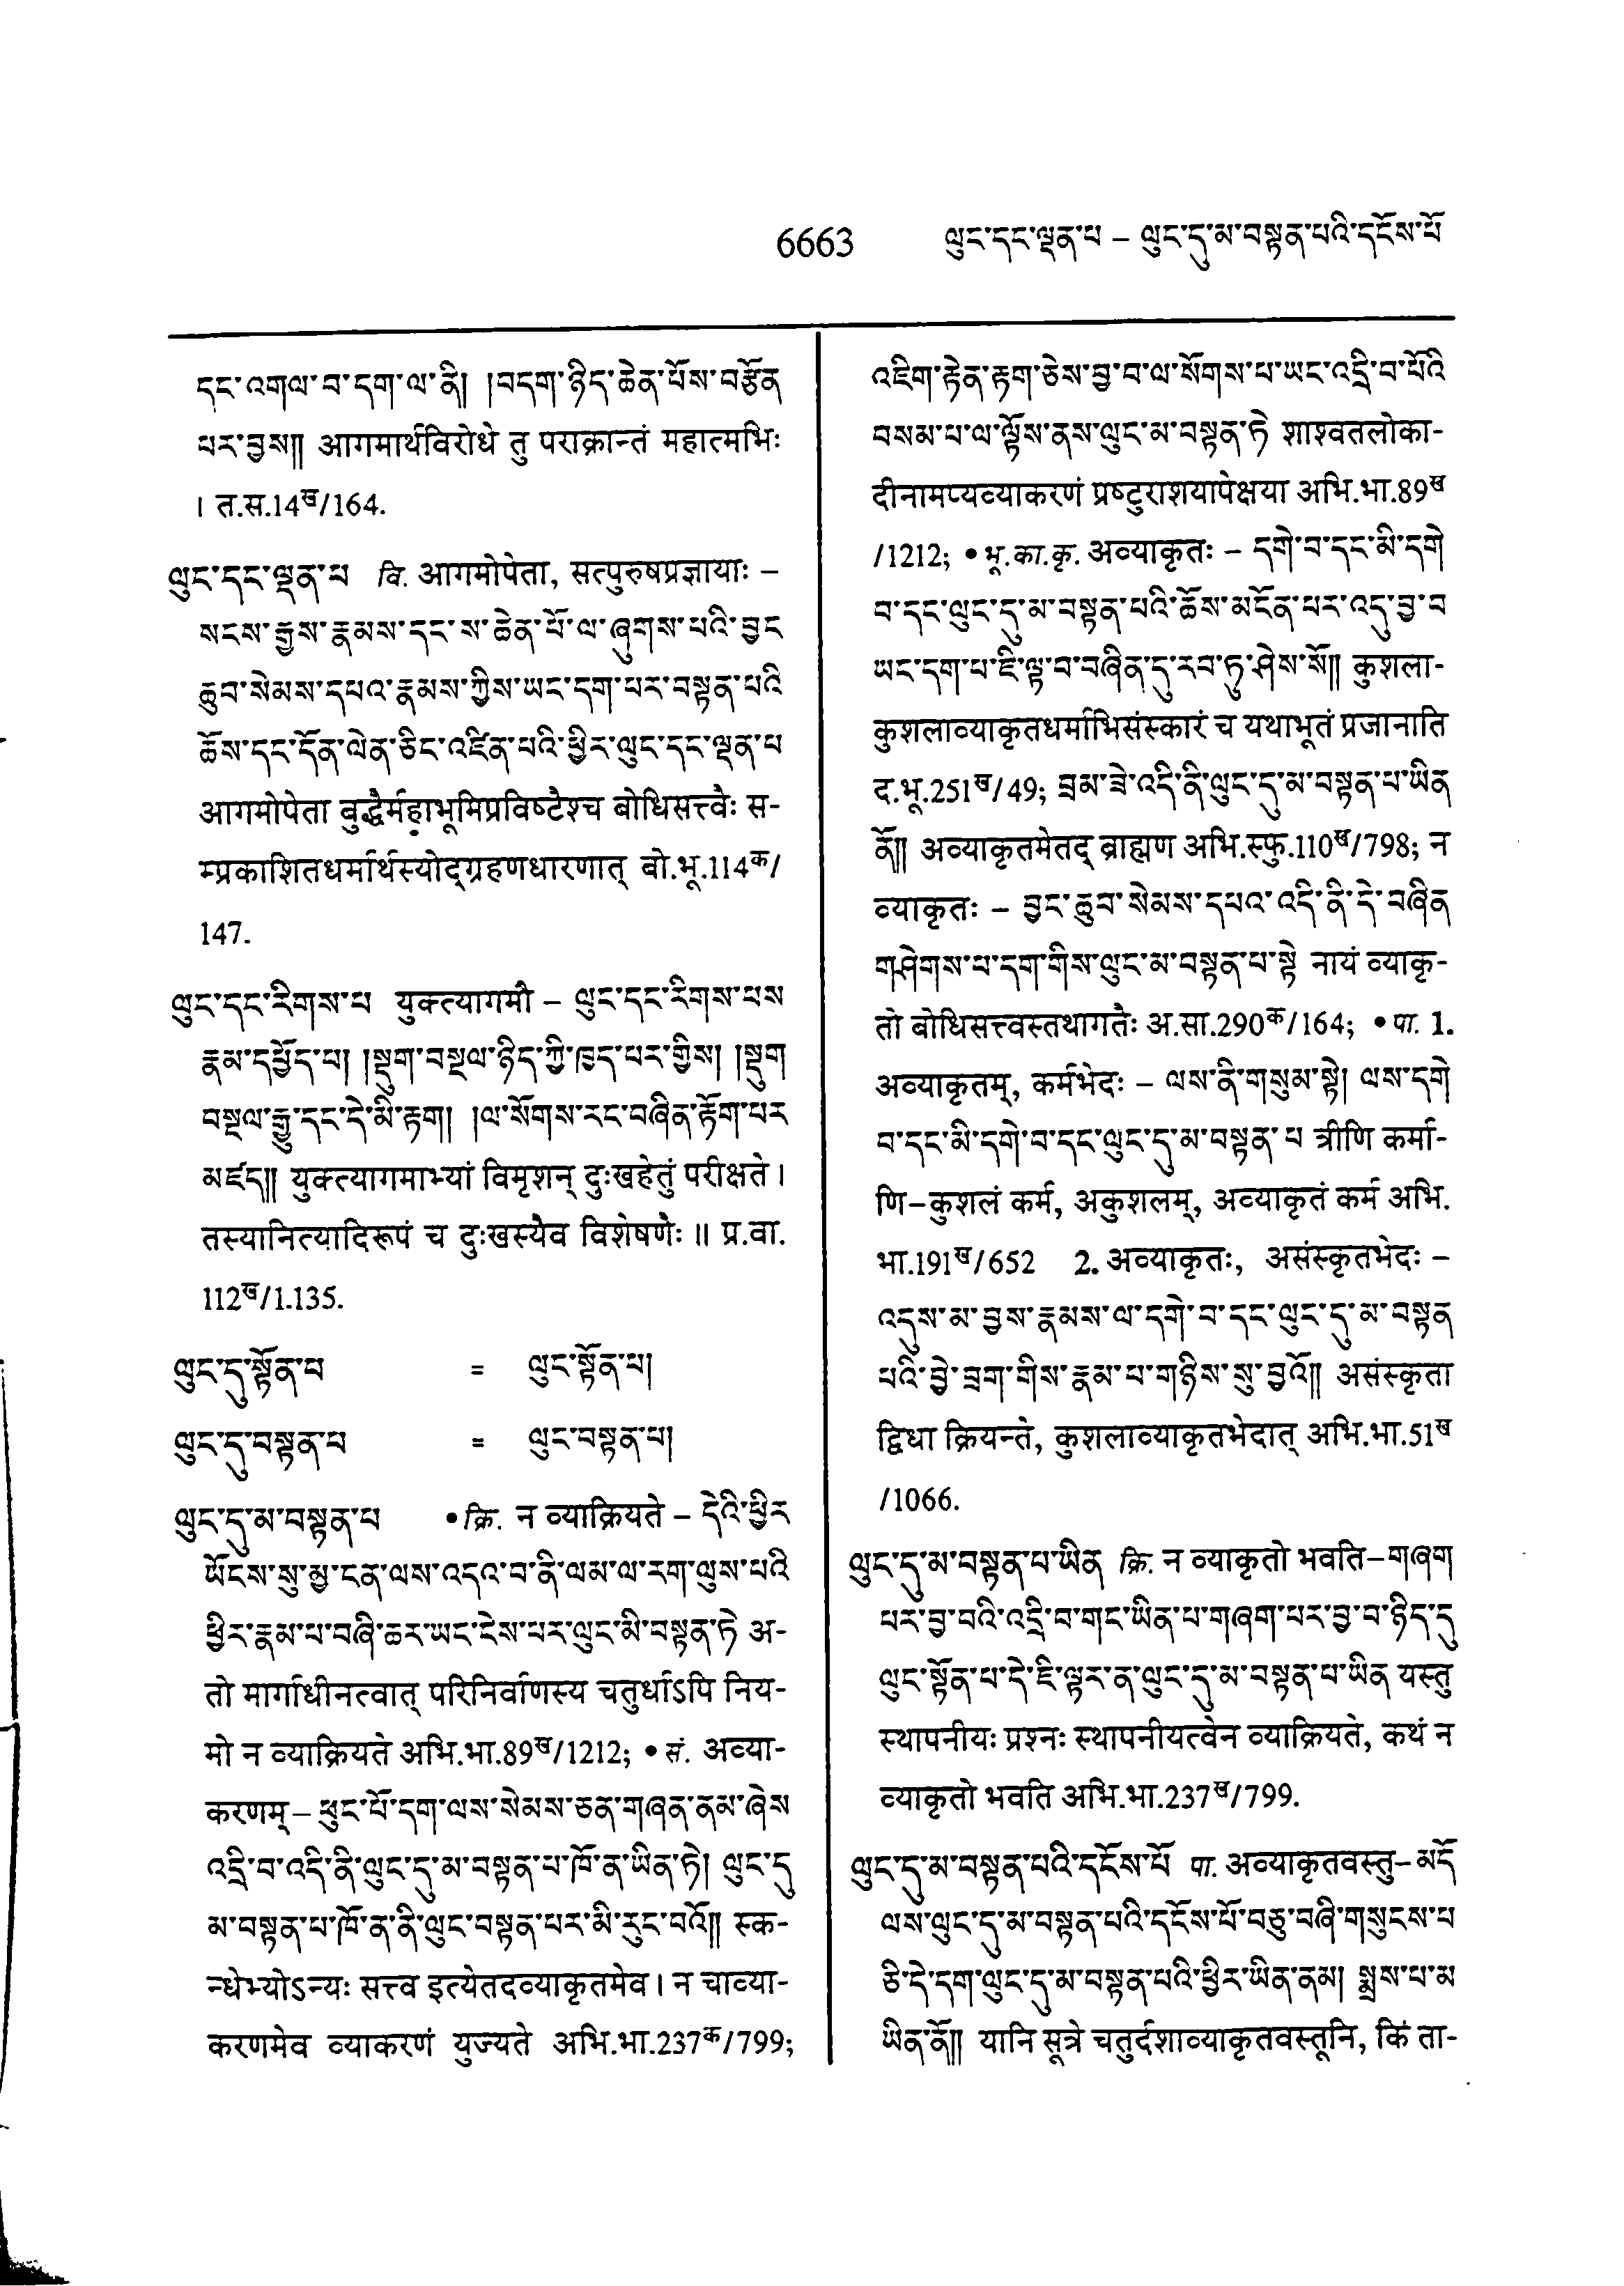 6663 ལུང་དང་ལྡན་པ – ལུང་དུ་མ་བསྟན་པའི་དངོས་པོ
དང་འགལ་བ་དག་ལ་ནི། །བདག་ཉིད་ཆེན་པོས་བརྩོན
པར་བྱས༎ आगमार्थविरोधे तु पराक्रान्तं महात्मभिः
। त.स.14ख/164.
ལུང་དང་ལྡན་པ वि. आगमोपेता, सत्पुरुषप्रज्ञायाः –
སངས་རྒྱས་རྣམས་དང་ས་ཆེན་པོ་ལ་ཞུགས་པའི་བྱང
ཆུབ་སེམས་དཔའ་རྣམས་ཀྱིས་ཡང་དག་པར་བསྟན་པའི
ཆོས་དང་དོན་ལེན་ཅིང་འཛིན་པའི་ཕྱིར་ལུང་དང་ལྡན་པ
आगमोपेता बुद्धैर्महाभूमिप्रविष्टैश्च बोधिसत्त्वैः स-
म्प्रकाशितधर्मार्थस्योद्ग्रहणधारणात् बो.भू.114क/
147.
ལུང་དང་རིགས་པ युक्त्यागमौ – ལུང་དང་རིགས་པས
རྣམ་དཔྱོད་པ། །སྡུག་བསྔལ་ཉིད་ཀྱི་ཁྱད་པར་གྱིས། །སྡུག
བསྔལ་རྒྱུ་དང་དེ་མི་རྟག། །ལ་སོགས་རང་བཞིན་རྟོག་པར
མཛད༎ युक्त्यागमाभ्यां विमृशन् दुःखहेतुं परीक्षते ।
तस्यानित्यादिरूपं च दुःखस्यैव विशेषणैः ॥ प्र.वा.
112ख/1.135.
ལུང་དུ་སྟོན་པ = ལུང་སྟོན་པ།
ལུང་དུ་བསྟན་པ = ལུང་བསྟན་པ།
ལུང་དུ་མ་བསྟན་པ • क्रि. न व्याक्रियते – དེའི་ཕྱིར
ཡོངས་སུ་མྱ་ངན་ལས་འདའ་བ་ནི་ལམ་ལ་རག་ལུས་པའི
ཕྱིར་རྣམ་པ་བཞི་ཆར་ཡང་ངེས་པར་ལུང་མི་བསྟན་ཏེ अ-
तो मार्गाधीनत्वात् परिनिर्वाणस्य चतुर्धाऽपि निय-
मो न व्याक्रियते अभि.भा.89ख/1212; • सं. अव्या-
करणम् – ཕུང་པོ་དག་ལས་སེམས་ཅན་གཞན་ནམ་ཞེས
འདྲི་བ་འདི་ནི་ལུང་དུ་མ་བསྟན་པ་ཁོ་ན་ཡིན་ཏེ། ལུང་དུ
མ་བསྟན་པ་ཁོ་ན་ནི་ལུང་བསྟན་པར་མི་རུང་བའོ༎ स्क-
न्धेभ्योऽन्यः सत्त्व इत्येतदव्याकृतमेव । न चाव्या-
करणमेव व्याकरणं युज्यते अभि.भा.237क/799;
འཇིག་རྟེན་རྟག་ཅེས་བྱ་བ་ལ་སོགས་པ་ཡང་འདྲི་བ་པོའི
བསམ་པ་ལ་ལྟོས་ནས་ལུང་མ་བསྟན་ཏེ शाश्वतलोका-
दीनामप्यव्याकरणं प्रष्टुराशयापेक्षया अभि.भा.89ख
/1212; • भू.का.कृ. अव्याकृतः – དགེ་བ་དང་མི་དགེ
བ་དང་ལུང་དུ་མ་བསྟན་པའི་ཆོས་མངོན་པར་འདུ་བྱ་བ
ཡང་དག་པ་ཇི་ལྟ་བ་བཞིན་དུ་རབ་ཏུ་ཤེས་སོ༎ कुशला-
कुशलाव्याकृतधर्माभिसंस्कारं च यथाभूतं प्रजानाति
द.भू.251ख/49; བྲམ་ཟེ་འདི་ནི་ལུང་དུ་མ་བསྟན་པ་ཡིན
ནོ༎ अव्याकृतमेतद् ब्राह्मण अभि.स्फु.110ख/798; न
व्याकृतः – བྱང་ཆུབ་སེམས་དཔའ་འདི་ནི་དེ་བཞིན
གཤེགས་པ་དག་གིས་ལུང་མ་བསྟན་པ་སྟེ नायं व्याकृ-
तो बोधिसत्त्वस्तथागतैः अ.सा.290क/164; • पा. 1.
अव्याकृतम्, कर्मभेदः – ལས་ནི་གསུམ་སྟེ། ལས་དགེ
བ་དང་མི་དགེ་བ་དང་ལུང་དུ་མ་བསྟན་པ त्रीणि कर्मा-
णि–कुशलं कर्म, अकुशलम्, अव्याकृतं कर्म अभि.
भा.191ख/652 2. अव्याकृतः, असंस्कृतभेदः –
འདུས་མ་བྱས་རྣམས་ལ་དགེ་བ་དང་ལུང་དུ་མ་བསྟན
པའི་བྱེ་བྲག་གིས་རྣམ་པ་གཉིས་སུ་བྱའོ༎ असंस्कृता
द्विधा क्रियन्ते, कुशलाव्याकृतभेदात् अभि.भा.51ख
/1066.
ལུང་དུ་མ་བསྟན་པ་ཡིན क्रि. न व्याकृतो भवति–གཞག
པར་བྱ་བའི་འདྲི་བ་གང་ཡིན་པ་གཞག་པར་བྱ་བ་ཉིད་དུ
ལུང་སྟོན་པ་དེ་ཇི་ལྟར་ན་ལུང་དུ་མ་བསྟན་པ་ཡིན यस्तु
स्थापनीयः प्रश्नः स्थापनीयत्वेन व्याक्रियते, कथं न
व्याकृतो भवति अभि.भा.237ख/799.
ལུང་དུ་མ་བསྟན་པའི་དངོས་པོ पा. अव्याकृतवस्तु–མདོ
ལས་ལུང་དུ་མ་བསྟན་པའི་དངོས་པོ་བཅུ་བཞི་གསུངས་པ
ཅི་དེ་དག་ལུང་དུ་མ་བསྟན་པའི་ཕྱིར་ཡིན་ནམ། སྨྲས་པ་མ
ཡིན་ནོ༎ यानि सूत्रे चतुर्दशाव्याकृतवस्तूनि, किं ता-